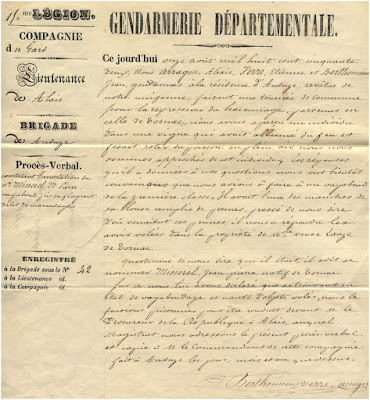 15.me LÉGION.
COMPAGNIE
du Gard
Lieutenance
de Alais
BRIGADE
de Anduze
Procès-Verbal.
constatant l'arrestation du
nommé
vagabond,
délit de vagabondage
ENREGISTRÉ
à la Brigade sous le N° 42
à la Lieutenance id.
à la Compagnie id.
GENDARMERIE DÉPARTEMENTALE.
Ce jourd'hui onze août mil huit cent cinquante
deux Nous Arragon, Alais, Étienne et Berthomieu
Jean, gendarmes à la résidence d'Anduze, revêtus de
notre uniforme, faisant une tournée de commune
pour la repression du braconnage parvenus en
celle de Tornac, nous avons aperçu un individu
dans une vigne que avait allumé du feu et
fesait rotir du poisson en plein air nous nous
sommes approchés de cet individu, les reponses
qu'il a données à nos questions nous ont bientot
convaincus que nous avions à faire à un vagabond
de la première classe, il avait l'une des manches de
sa blouse remplie de grenades, pressé de nous dire
d'où venaient ces pièces, il nous a répondu les
avoir volées dans la propriété de Me. veuve
de Tornac
questionné de nous dire qui il était, il a dit se
nommer Jean, pierre natif de Tornac
sur ce nous lui avons déclaré que se trouvant en
état de vagabondage et nanti d'objets volés, nous le
faisions prisonnier pour être conduit devant M. le
Procureur de la République à Alais, auquel
Magistrat nous adressons le present procès verbal
et copie à M. le Commandant de cette compagnie
fait à Anduze les jour, mois et an que dessus.
Berthomieu